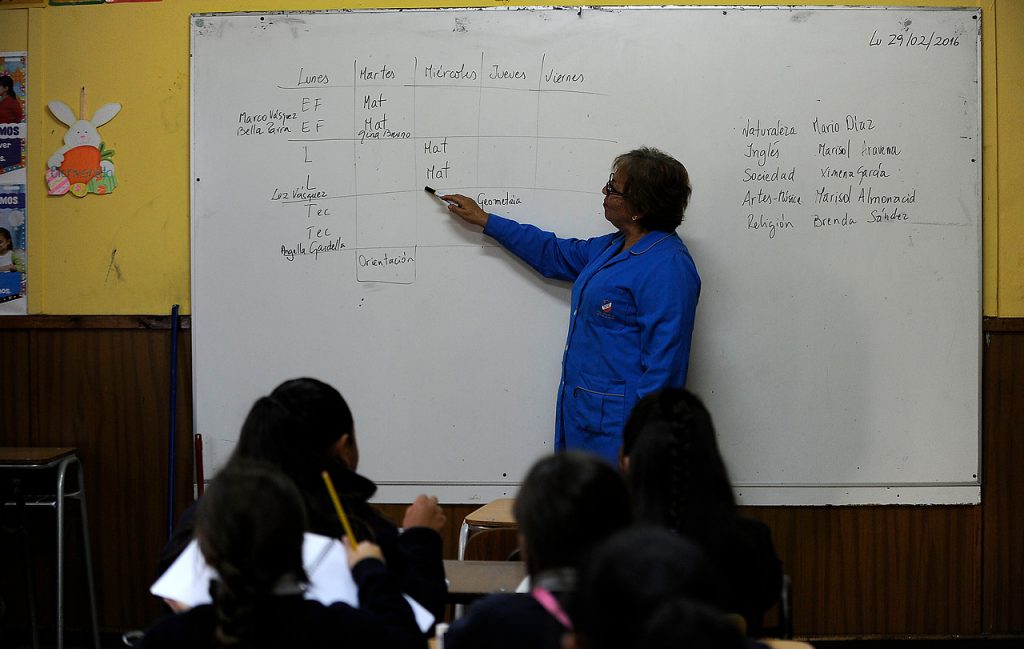 Lu 29/02/2016
Lunes Martes Miércoles Jueves Viernes
EF Mat
Marco Vásquez
Bella Parra EF Mat
Gina Bruno
L Mat
L Mat
Luz Vásquez
Tec Geometría
Tec
Angella Gardella
Orientación
Naturaleza Mario Díaz
Inglés Marisol Aravena
Sociedad Ximena García
Artes-Música Marisol Almonacid
Religión Brenda Sández
Bienvenidos
MOS
MOS.